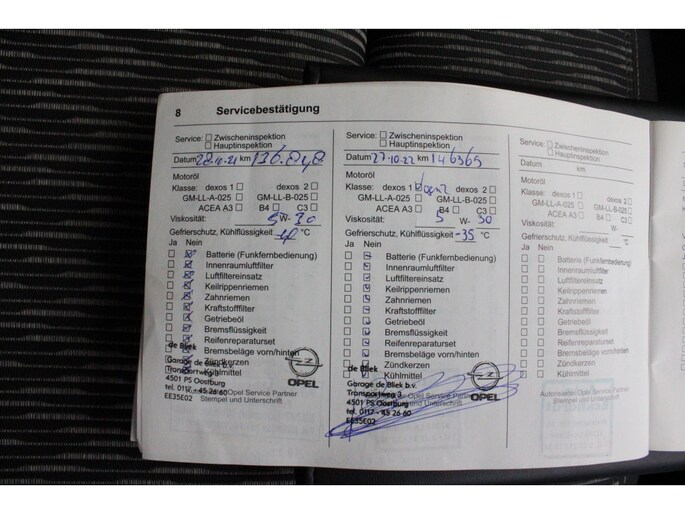 8 Servicebestätigung
Service: Zwischeninspektion
Hauptinspektion
Datum 28.10.21 km 136.848
Motoröl
Klasse: dexos 1 dexos 2
GM-LL-A-025 GM-LL-B-025
ACEA A3 B4 C3
Viskosität: 5 W- 30
Gefrierschutz, Kühlflüssigkeit °C
Ja Nein
Batterie (Funkfernbedienung)
Innenraumluftfilter
Luftfiltereinsatz
Keilrippenriemen
Zahnriemen
Kraftstofffilter
Getriebeöl
Bremsflüssigkeit
Reifenreparaturset
Bremsbeläge vorn/hinten
Zündkerzen
Kühlmittel
de Bliek
Garage de Bliek b.v.
Transportweg
4501 PS Oostburg
tel. 0117 - 45 26 60
EE35E02
OPEL
Opel Service Partner
Stempel und Unterschrift
Service: Zwischeninspektion
Hauptinspektion
Datum 27.10.22 km 146365
Motoröl
Klasse: dexos 1 dexos 2
GM-LL-A-025 GM-LL-B-025
ACEA A3 B4 C3
Viskosität: 5 W- 30
Gefrierschutz, Kühlflüssigkeit -35 °C
Ja Nein
Batterie (Funkfernbedienung)
Innenraumluftfilter
Luftfiltereinsatz
Keilrippenriemen
Zahnriemen
Kraftstofffilter
Getriebeöl
Bremsflüssigkeit
Reifenreparaturset
Bremsbeläge vorn/hinten
Zündkerzen
Kühlmittel
de Bliek
Garage de Bliek b.v.
Transportweg 3
4501 PS Oostburg
tel. 0117 - 45 26 60
EE35E02
OPEL
Opel Service Partner
und Unterschrift
Service: Zwischeninspektion
Hauptinspektion
Datum km
Motoröl
Klasse: dexos 1 dexos 2
GM-LL-A-025 GM-LL-B-025
ACEA A3 B4 C3
Viskosität: W-
Gefrierschutz, Kühlflüssigkeit °C
Ja Nein
Batterie (Funkfernbedienung)
Innenraumluftfilter
Luftfiltereinsatz
Keilrippenriemen
Zahnriemen
Kraftstofffilter
Getriebeöl
Bremsflüssigkeit
Reifenreparaturset
Bremsbeläge vorn/hinten
Zündkerzen
Kühlmittel
Autorisierter Opel Service Partner
Stempel und Unterschrift